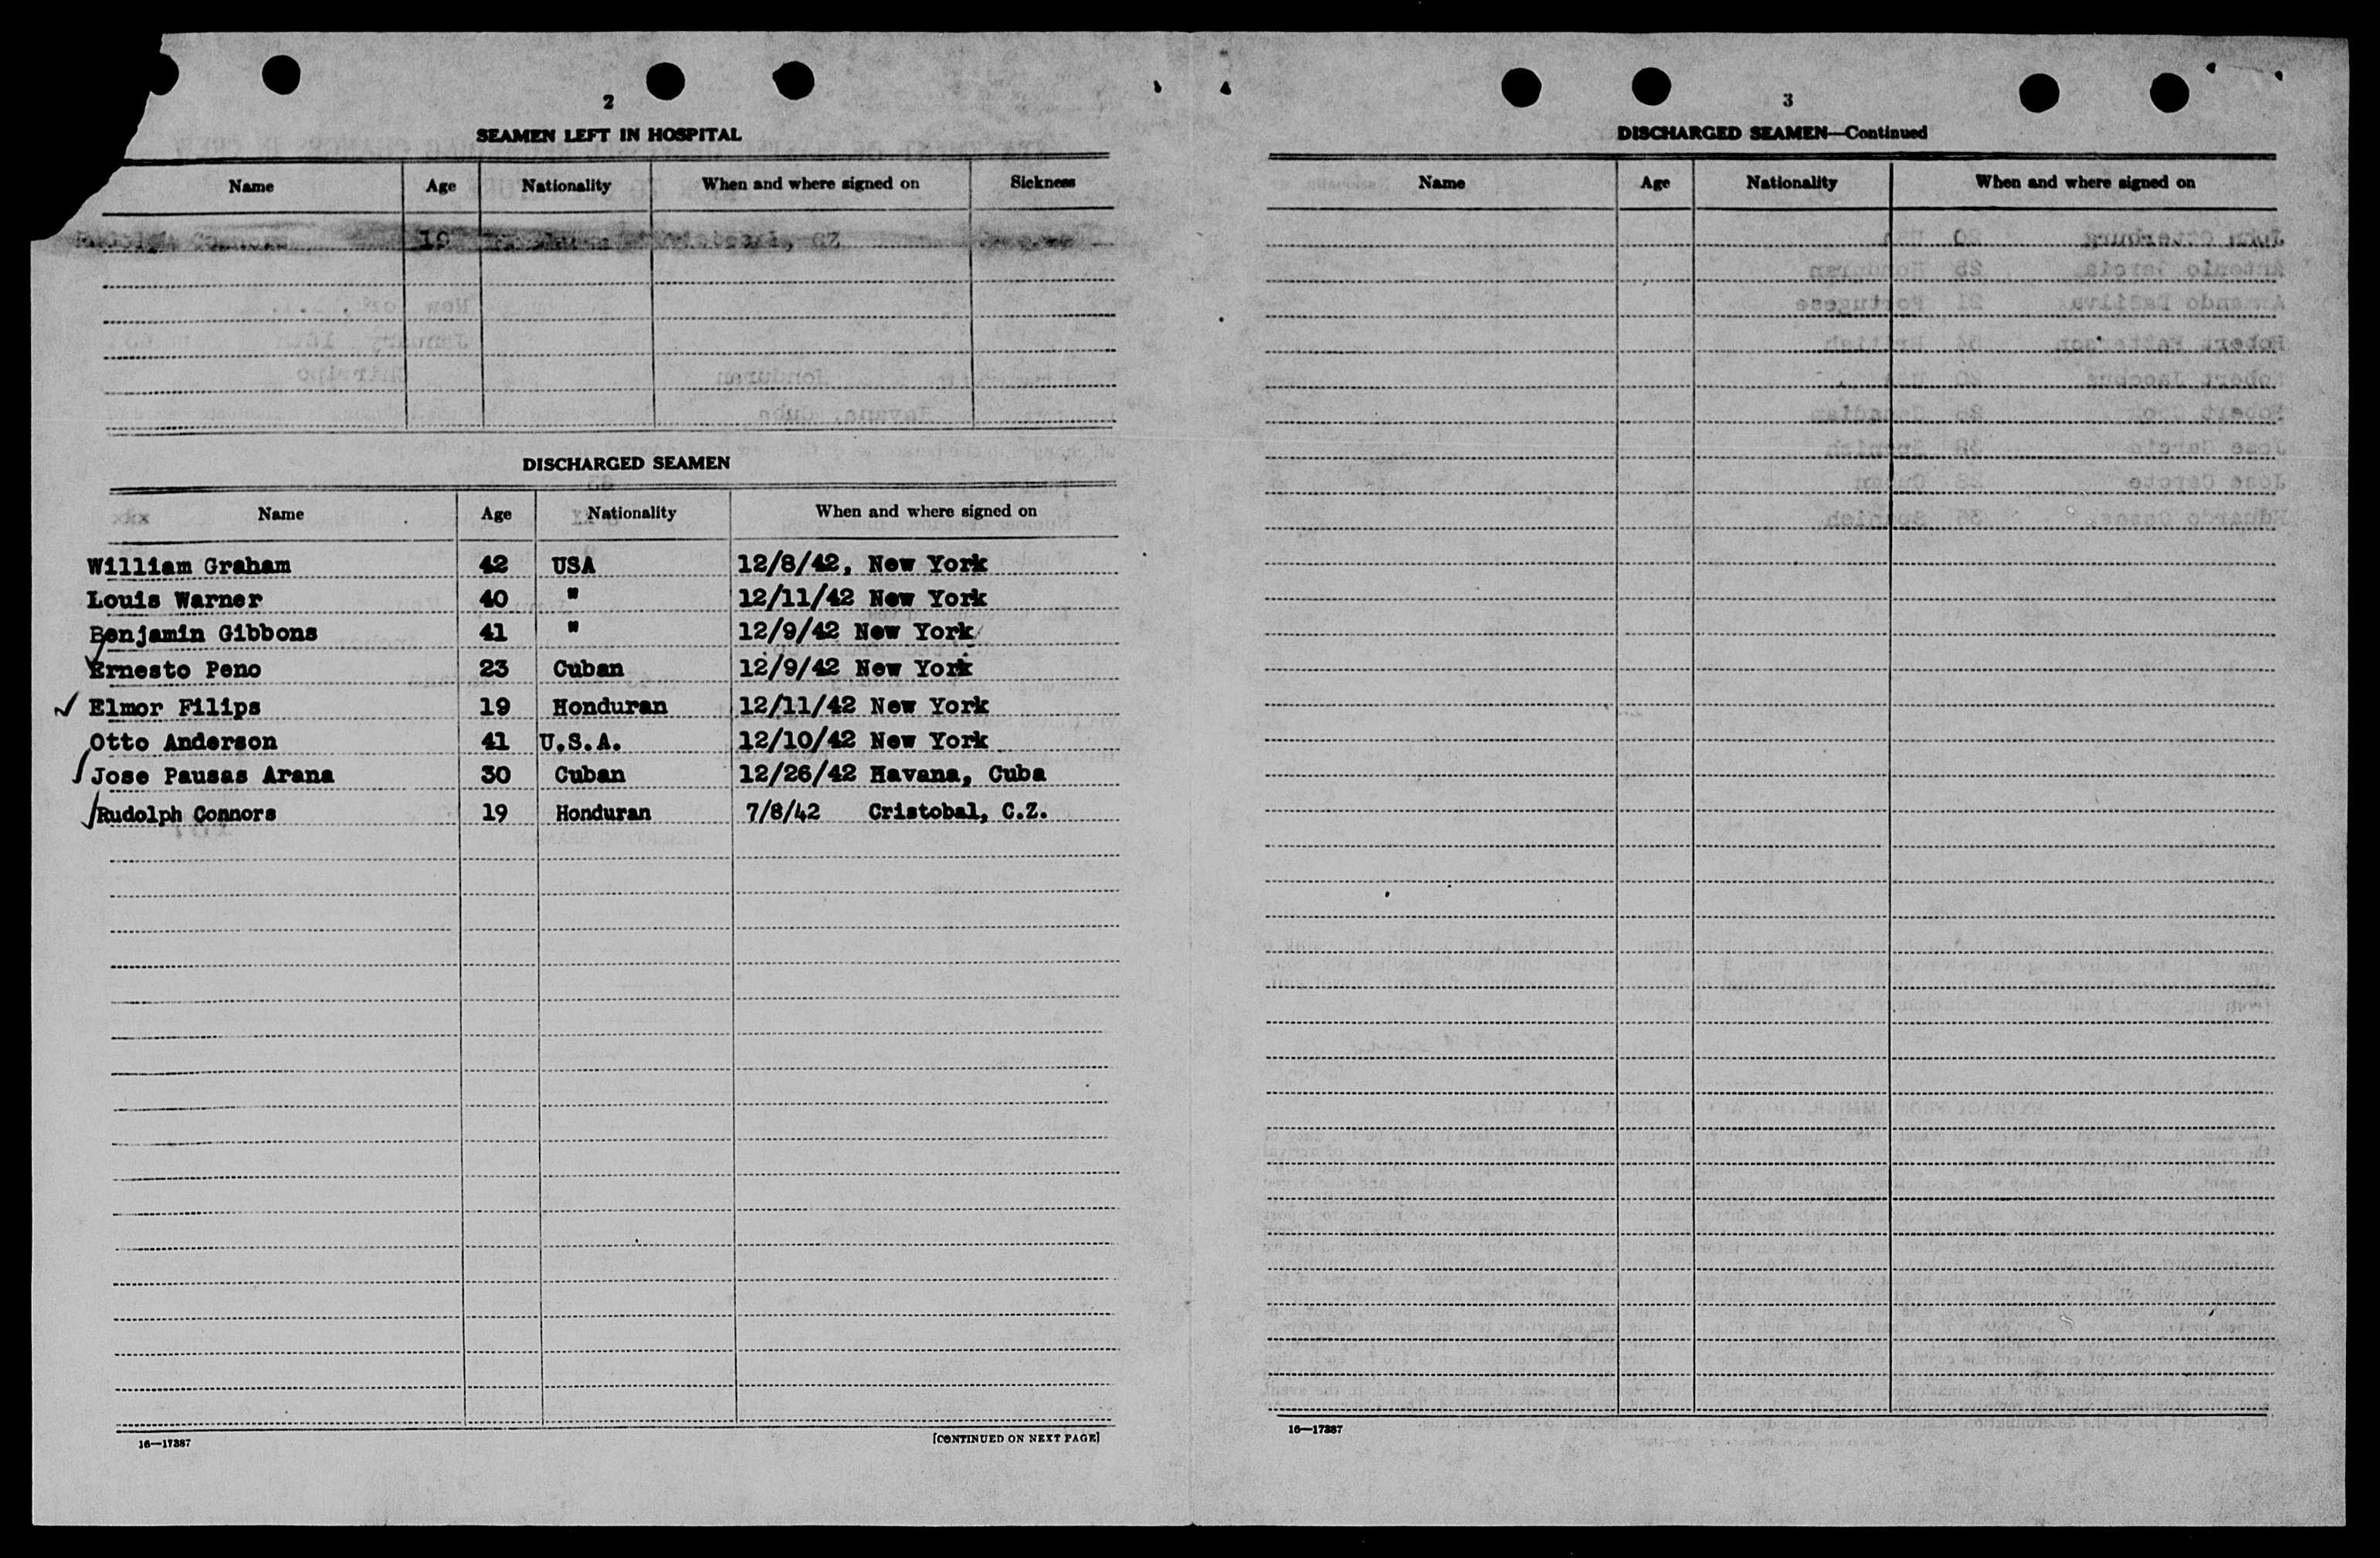 2
SEAMEN LEFT IN HOSPITAL
Name Age Nationality When and where signed on Sickness
DISCHARGED SEAMEN
Name Age Nationality When and where signed on
William Graham 42 USA 12/8/42, New York
Louis Warner 40 " 12/11/42 New York
Benjamin Gibbons 41 " 12/9/42 New York
Ernesto Peno 23 Cuban 12/9/42 New York
Elmor Filips 19 Honduran 12/11/42 New York
Otto Anderson 41 U.S.A. 12/10/42 New York
Jose Pausas Arana 30 Cuban 12/26/42 Havana, Cuba
Rudolph Connors 19 Honduran 7/8/42 Cristobal, C.Z.
16—17387
[CONTINUED ON NEXT PAGE]
3
DISCHARGED SEAMEN—Continued
Name Age Nationality When and where signed on
16—17387